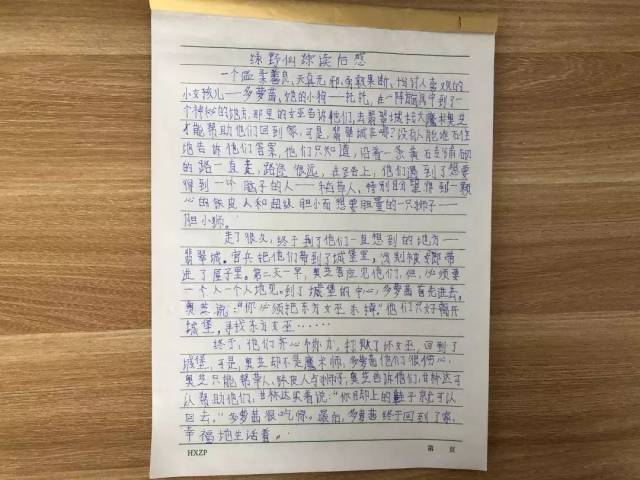 绿野仙踪读后感
一个温柔善良、天真无邪、勇敢果断、惹讨人喜欢的
小女孩儿——多萝茜,她的小狗——托托,在一阵龙卷风中到了一
个神秘的地方,那里的女巫告诉他们,去翡翠城找大魔术奥芝
才能帮助他们回到家,可是,翡翠城在哪?没有人能准确
地告诉他们答案,他们只知道,沿着一条黄石头铺成
的路一直走,路途很远,在路上,他们遇到了想要
得到一个脑子的人——稻草人,特别盼望得到一颗
心的铁皮人和超级胆小而想要胆量的一只狮子——
胆小狮。
走了很久,终于到了他们一直想到的地方——
翡翠城。官兵把他们带到了城堡里,分别被带
进了屋子里。第二天一早,奥芝答应见他们,但,必须要
一个人一个人地见。到了城堡的中心,多萝茜先进去,
奥芝说:“你必须把东方女巫杀掉。”他们只好离开
城堡。寻找东方女巫……
终于,他们齐心协力,打败了坏女巫,回到了
城堡,可是,奥芝却不是魔术师,多萝茜他们很伤心。
奥芝只能帮草人、铁皮人与狮子,奥芝告诉他们,甘林达可
以帮助他们,甘林达笑着说:“你目却上的鞋子就可以
回去。”多萝茜很吃惊。最后,多萝茜终于回到了家,
幸福地生活着。
HXZP
第 页